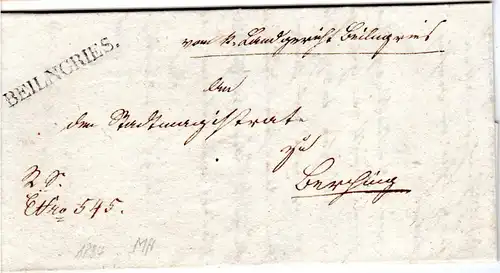 BEILNGRIES.
vom k. Landgericht Beilngries
An
den Stadtmagistrat
zu
Berching
R. S.
No 545.